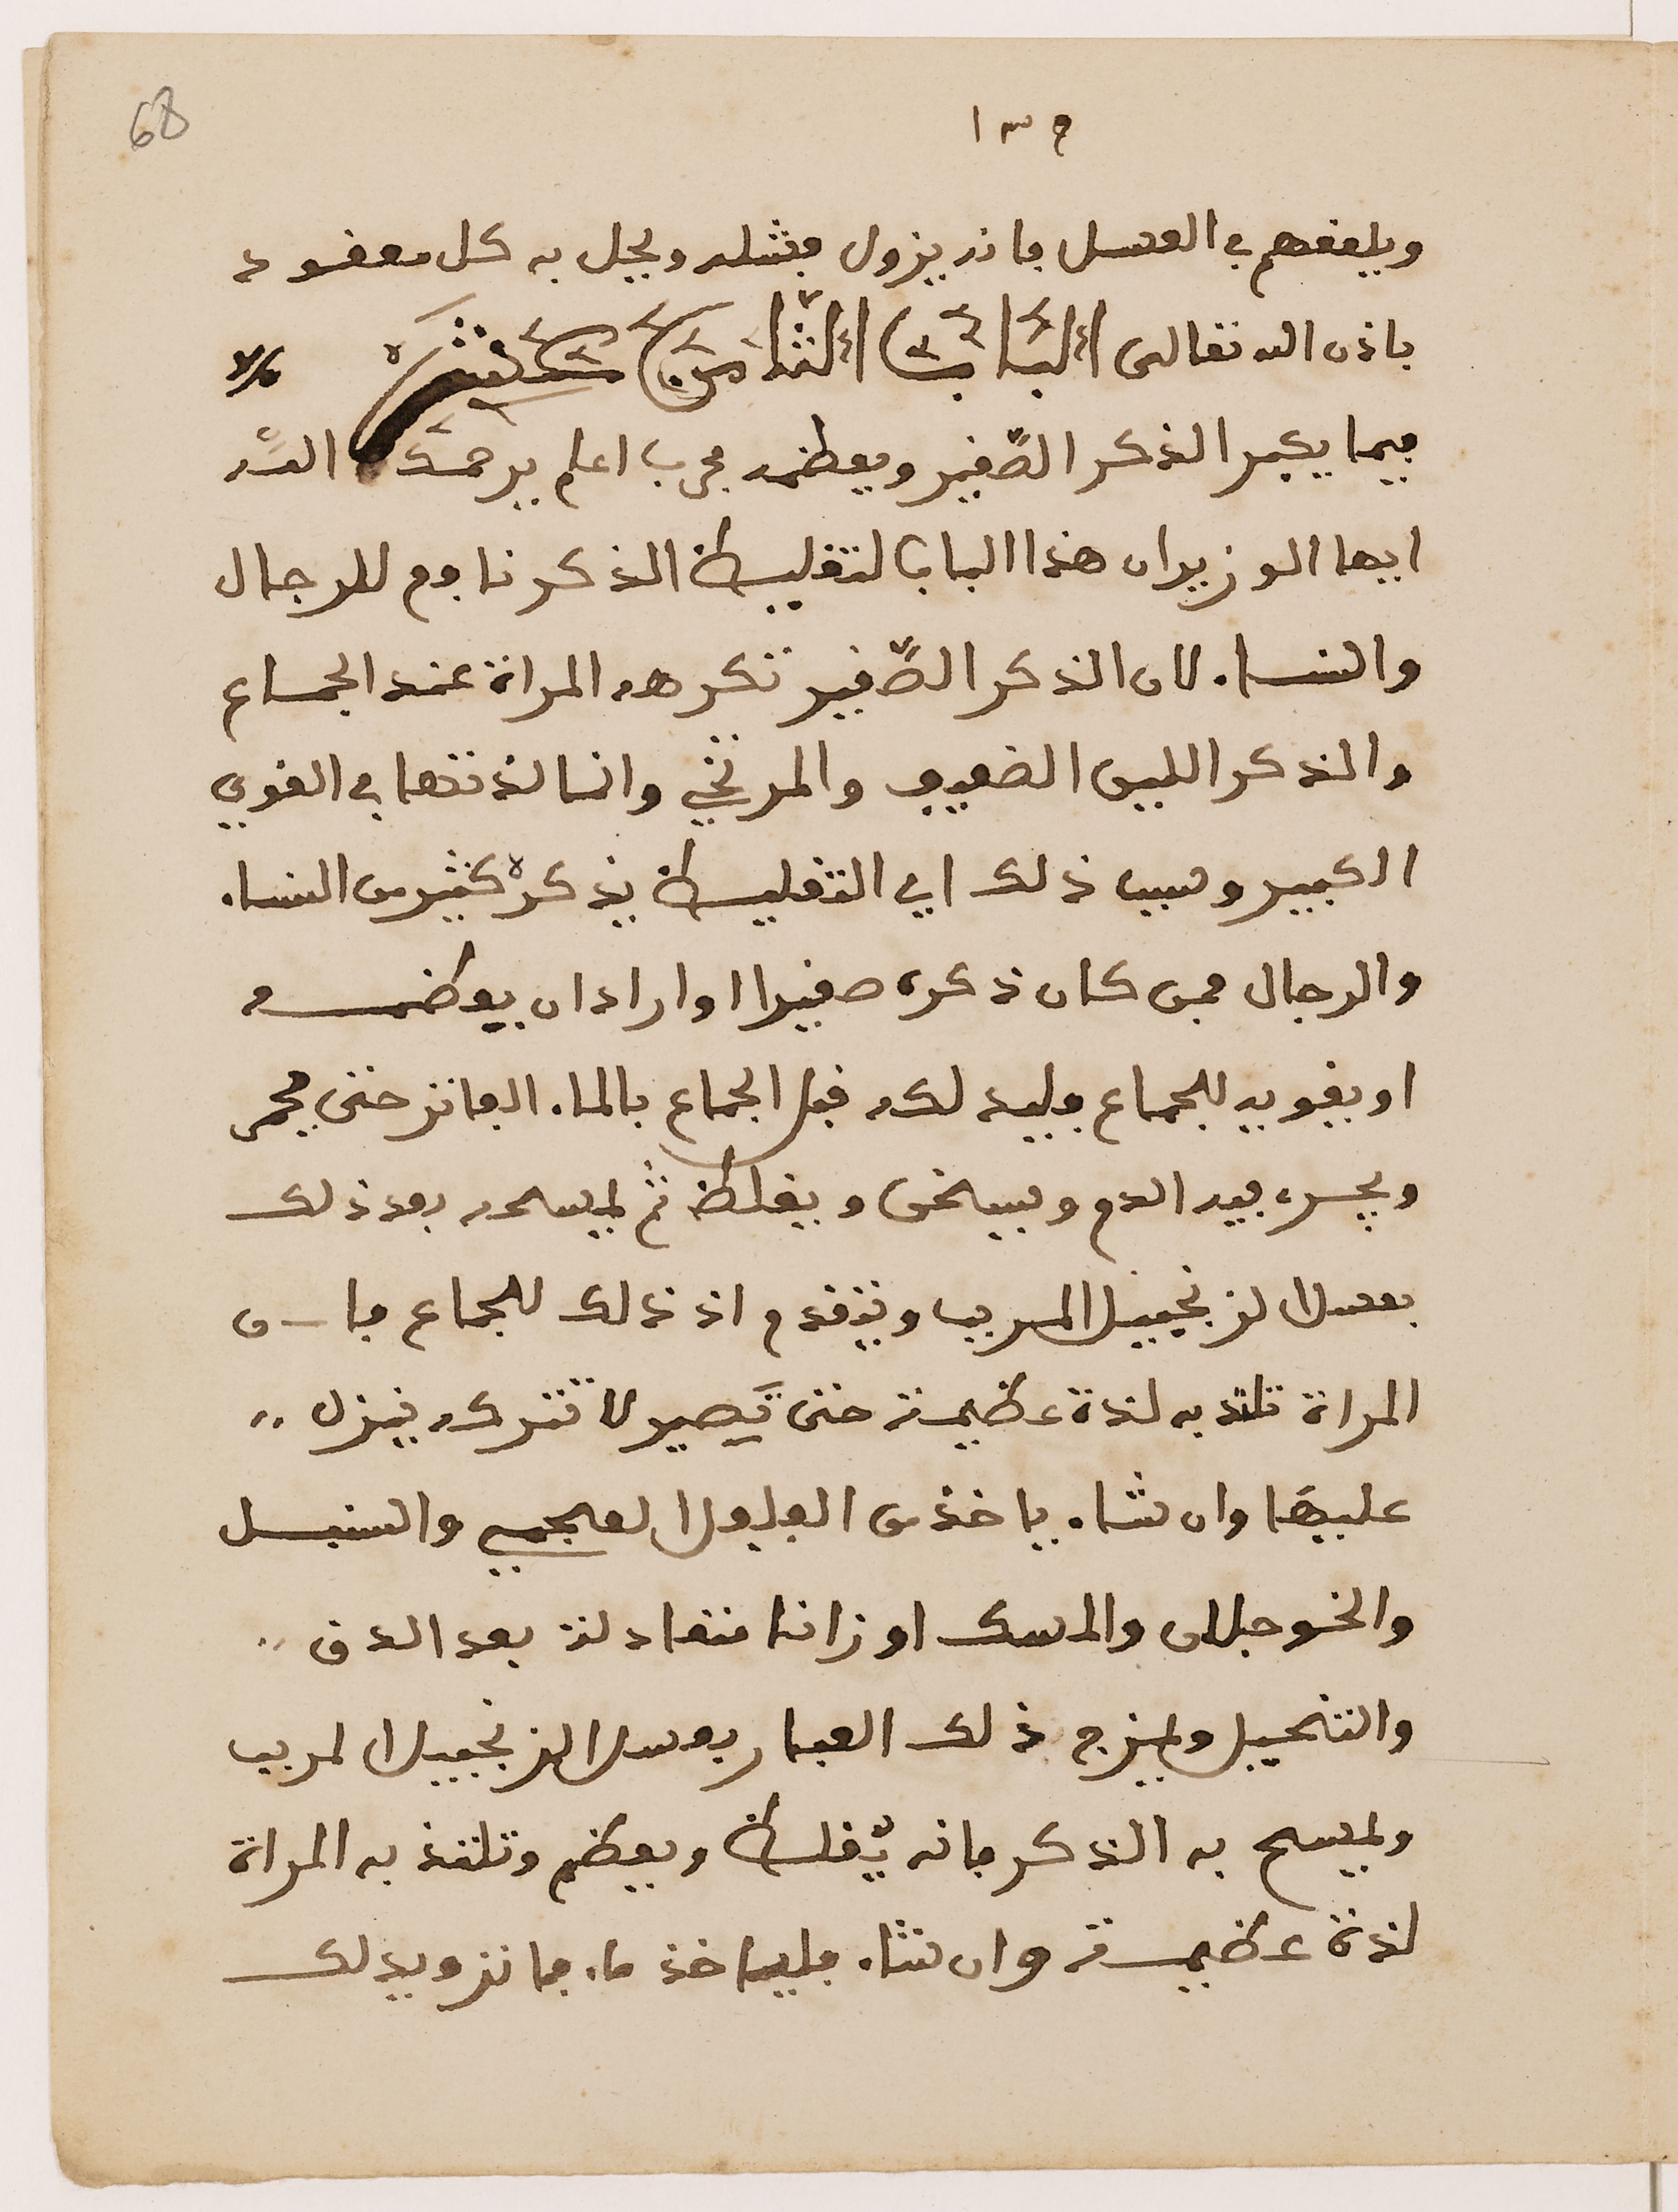 68
١٣٥
ويلعقهم في العسل فانه يزول فشله ويحل به كل معقود
باذن الله تعالى الباب الثامن عشر
فيما يكبر الذكر الصغير ويعظمه مجرب اعلم يرحمك الله
ايها الوزير ان هذا الباب لتغليظ الذكر نافع للرجال
والنساء لان الذكر الصغير تكرهه المراة عند الجماع
والذكر اللين الضعيف والمرتخي وانما لذتها في القوي
الكبير وسبب ذلك اي التغليظ يذكره كثير من النساء
والرجال فمن كان ذكره صغيرا او اراد ان يعظمه
او يقويه للجماع فليدلكه قبل الجماع بالماء الفاتر حتى يحمر
ويجري فيه الدم ويسخن ويغلظ ثم يمسحه بعد ذلك
بعسل الزنجبيل المربب ويتقدم اذ ذلك للجماع فان
المراة تلتذ به لذة عظيمة حتى تصير لا تتركه ينزل
عليها وان شاء ياخذ من الفلفل العجمي والسنبل
والخوجلان والمسك اوزانا متعادلة بعد الدق
والتنخيل ويمزج ذلك الغبار بعسل الزنجبيل المربب
ويمسح به الذكر فانه يغلظ ويعظم وتلتذ به المراة
لذة عظيمة وان شاء فلياخذ ماء فاتر ويدلك